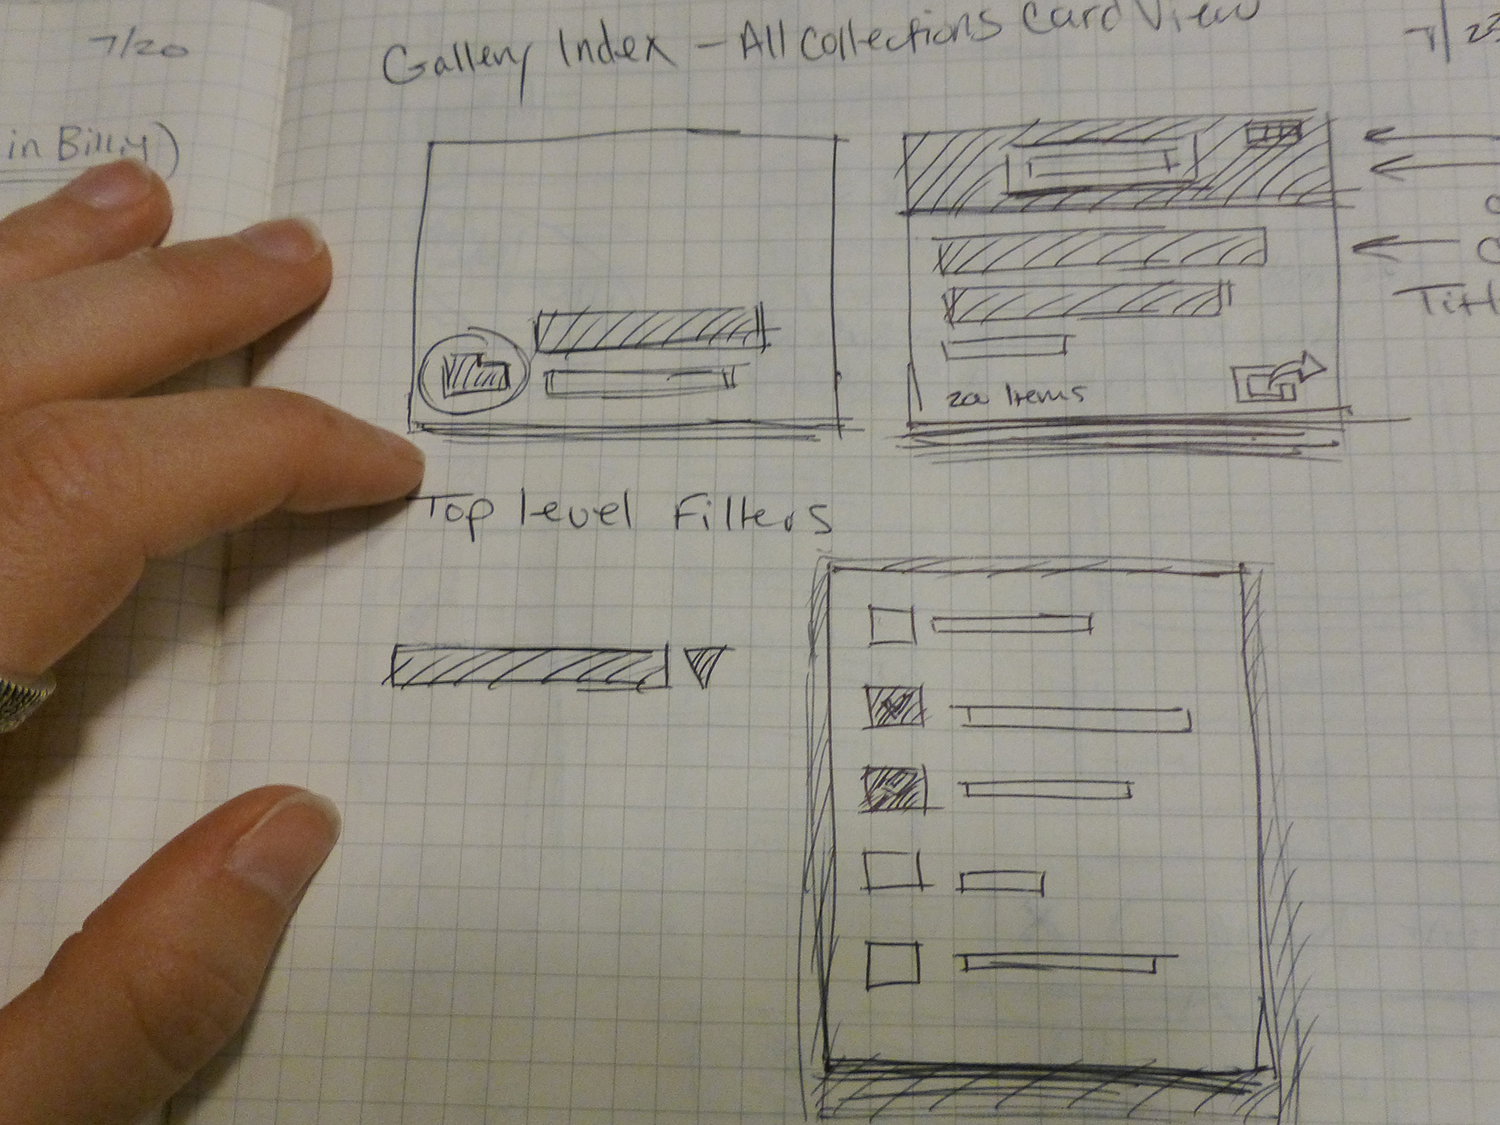 7/20
in Billy)
Gallery Index - All Collections Card View
7/23
Titl
200 Items
Top level Filters